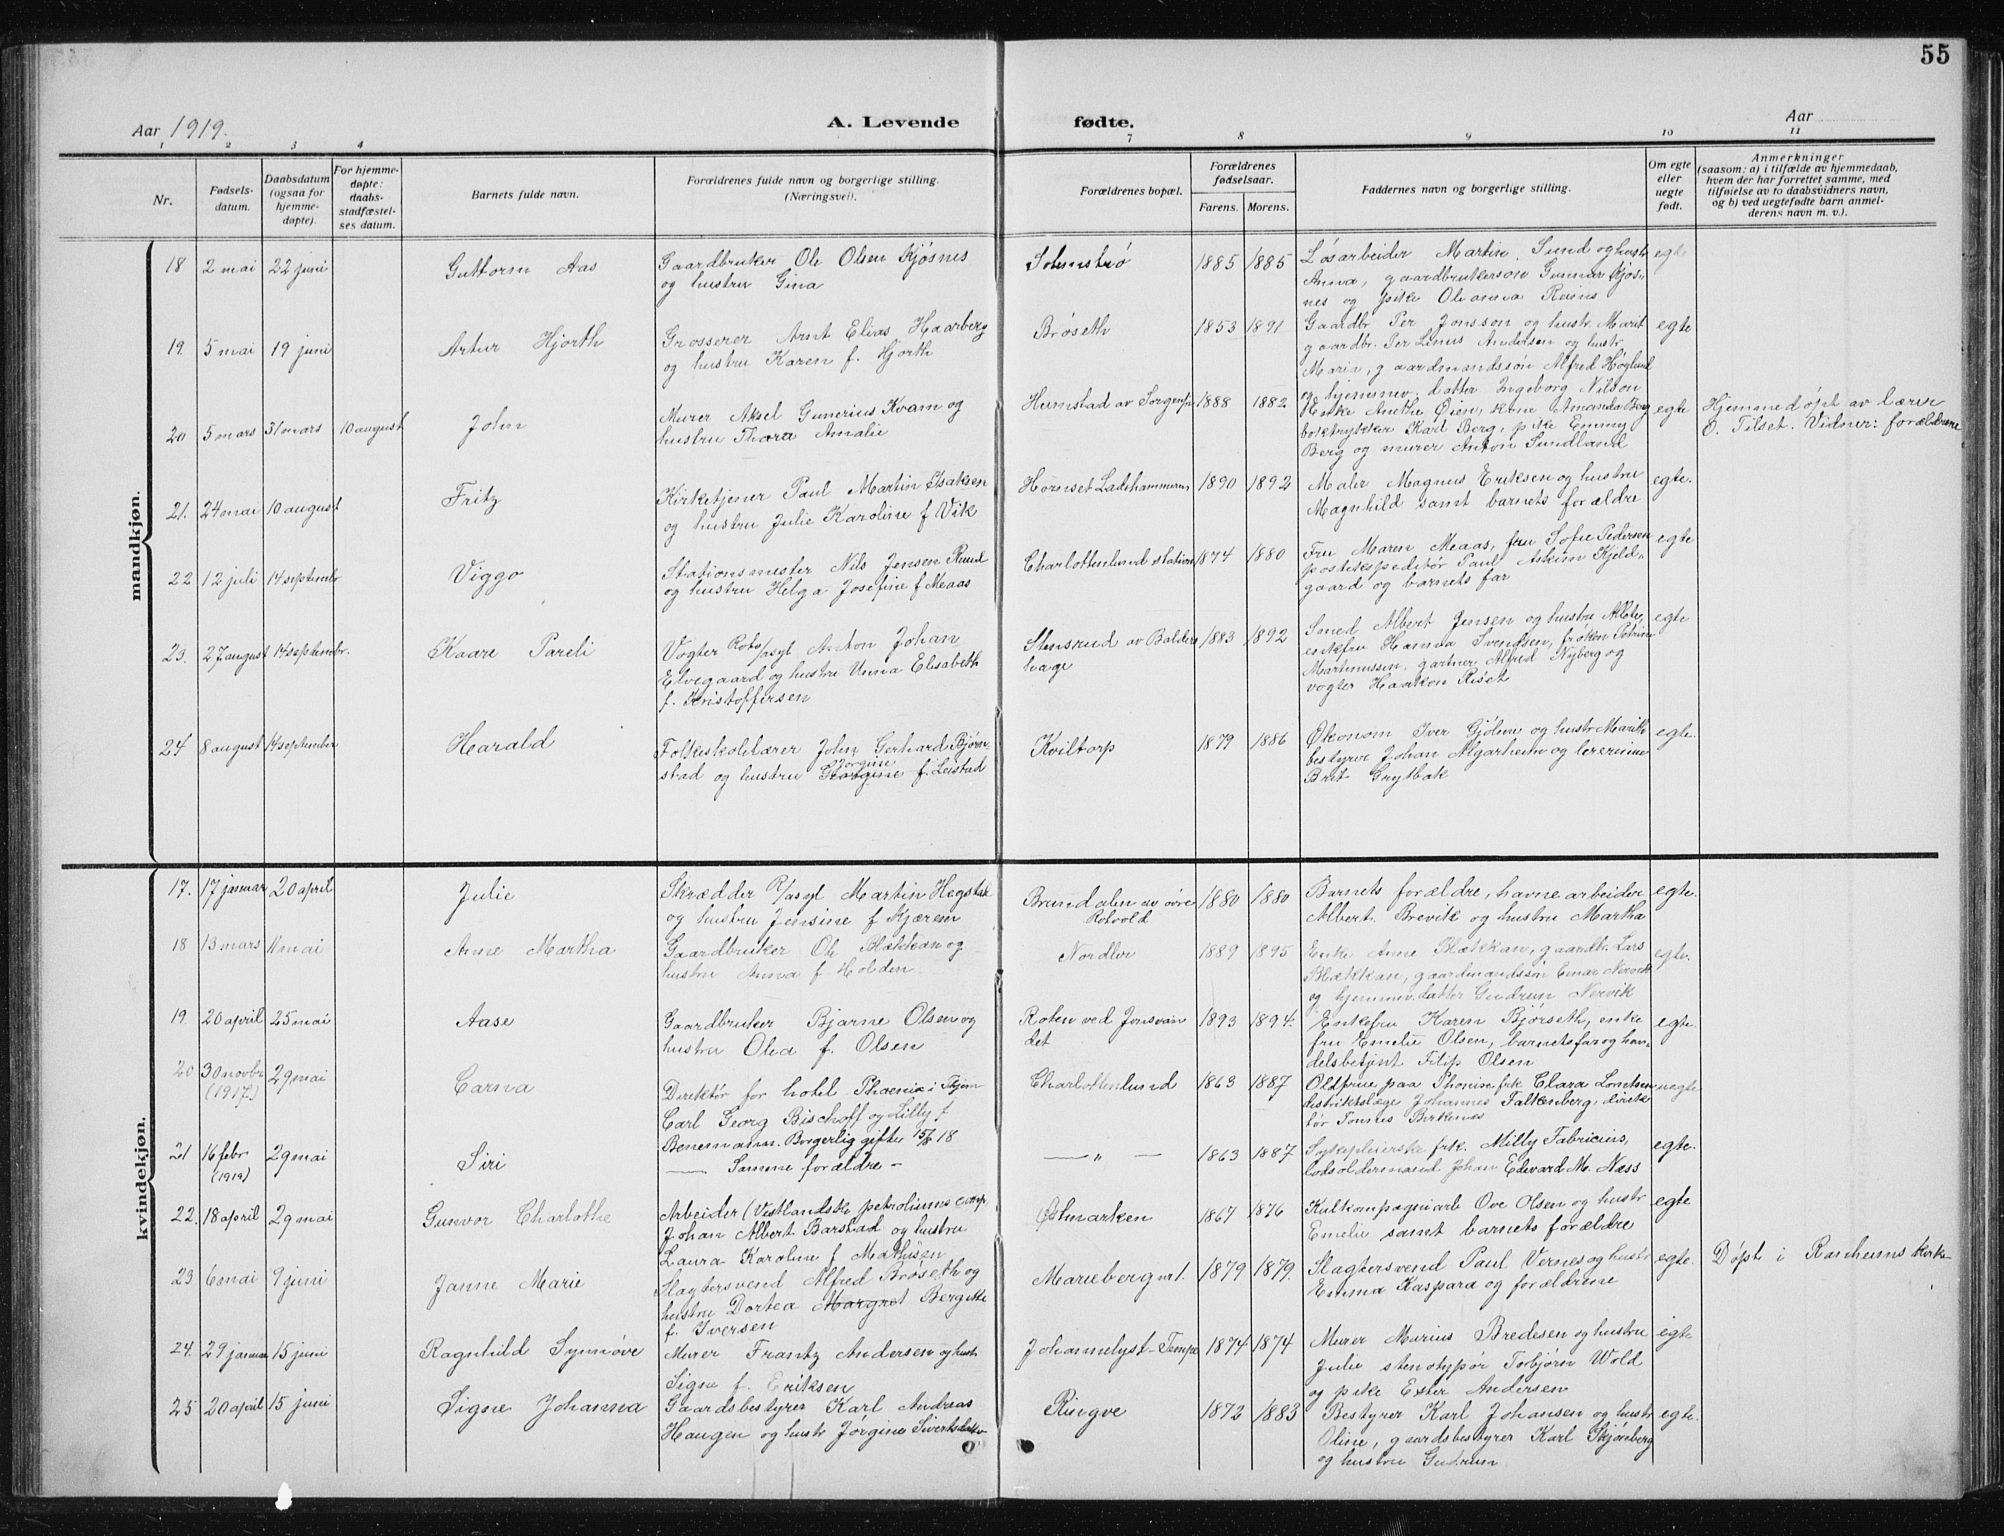 55
Aar 1919.
A. Levende fødte.
Aar
1 2 3 4 7 8 9 10 11
Nr.
Fødsels-
datum.
Daabsdatum
(ogsaa for
hjemme-
døpte).
For hjemme-
døpte:
daabs-
stadfæstel-
ses datum.
Barnets fulde navn.
Forældrenes fulde navn og borgerlige stilling.
(Næringsvei).
Forældrenes bopæl.
Forældrenes
fødselsaar.
Farens. Morens.
Faddernes navn og borgerlige stilling.
Om egte
eller
uegte
født.
Anmerkninger
(saasom: a) i tilfælde av hjemmedaab,
hvem der har forrettet samme, med
tilføielse av to daabsvidners navn,
og b) ved uegtefødte barn anmel-
derens navn m. v.).
mandkjøn.
18 2 mai 22 juni Guttorm Aas
Gaardbruker Ole Olsen Kjøsnes
og hustru Gina
Solunstrø 1885 1885
Løsarbeider Martin Sund og hustr
Anna, gaardbrukersøn Gunnar Kjøs-
nes og pike Oleanna Reins
egte
19. 5 mai 19 juni Artur Hjorth
Grosserer Arnt Elias Haarberg
og hustru Karen f. Hjorth
Brøseth 1853 1891
Gaardbr. Per Jonsson og hustr. Marit
gaardbr. Per Linus Andersen og hustr.
Maria, gaardmandssøn Alfred Høglund
og hjemmev. datter Ingeborg Nilson
egte
20 5 mars 31 mars 10 august John
Murer Aksel Gunerius Kvam og
hustru Thora Amalie
Humstad av 1888 1882
Enke Anethe Øien, kone Amanda Berg
boktrykker Karl Berg, pike Emmy
Berg og murer Anton Sundland
egte
Hjemmedøpt av lærer
O. Tilset. Vidner: forældrene
21. 24 mai 10 august Fritz
Kirketjener Paul Martin Isaksen
og hustru Julie Karoline f Vik
Hørnset Ladehammeren 1890 1892
Maler Magnus Eriksen og hustru
Magnhild samt barnets forældre
egte.
22 12 juli 14 septembr Viggo
Stationsmester Nils Jensen Ruud
og hustru Helga Josefine f Maas
Charlottenlund station 1874 1880
Fru Maren Maas, fru Sofie Pedersen
postekspeditør Paul Askim Kjeld-
gaard og barnets far
egte
23. 27 august 14 septembr. Kaare Pareli
Vogter Rotv/asyl Anton Johan
Elvegaard og hustru Unna Elisabeth
f. Kristoffersen
Stensrud av Balders
hage 1883 1892
Smed Albert Jensen og hustru
enkefru Hanna Svendsen, frøken Petrine
Martinussen, gartner Alfred Nyberg og
vogter Haakon Riset
egte
24 8 august 14 september Harald
Folkeskolelærer John Gerhard Bjørn-
stad og hustru Georgine Jørgine f. Leistad
Kviltorp 1879 1886
Økonom Iver Gjølme og hustr Marith
bestyrer Johan Algarheim og lærerinne
Brit Grytbak
egte.
kvindekjøn.
17. 17 januar 20 april Julie
Skrædder R/asyl Martin Hegstad
og hustru Jensine f Kjærem
Brundalen av øvre
Rotvold 1880 1880
Barnets forældre, havnearbeider
Albert Brevik og hustru Martha
egte.
18 13 mars 11 mai Anne Martha
Gaardbruker Ole Blækkan og
hustru Anna f Holden
Nordlee 1889 1895
Enke Anne Blækkan, gaardbr. Lars
Blækkan, gaardmandssøn Einar Nervik
og hjemmev. datter Gudrun Nervik
egte.
19. 20 april 25 mai Aase
Gaardbruker Bjarne Olsen og
hustru Olea f. Olsen
Roten ved Jonsvan
det 1893 1894.
Enkefru Karen Bjørseth, enke
fru Emelie Olsen, barnets far og han-
delsbetjent Filip Olsen
egte.
20 30 novbr
(1917) 29 mai Carna
Direktør for hotel Phoenix i Thjem
Carl Georg Bischoff og Lilly f
Benemann. Borgerlig gifter 15/8 18
Charlottenlund 1863 1887
Oldfrue paa Phønix frk Clara Lorentsen
distriktslæge Johannes Falkenberg, direk
tør Tønnes Birkenes
uegte
21 16 febr
(1919) 29 mai Siri
— Samme forældre —
— " — 1863 1887
Sykepleierske frk. Milly Fabricius,
lodsoldermand Johan Edvard M. Næss
egte.
22. 18 april 29 mai Gunvor Charlotte
Arbeider (Vestlandske petroleums comp.
Johan Albert Barstad og hustru
Laura Karoline f Mathisen
Østmarken 1867 1876
Kulkompagniarb Ove Olsen og hustr
Emelie samt barnets forældre
egte
23 6 mai 9 juni Janne Marie
Slagtersvend Alfred Brøseth og
hustru Dortea Margret Bergitte
f. Iversen
Marieberg nr 1. 1879 1879.
Slagtersvend Paul Vernes og hustr
Emma Kaspara og forældrene
egte.
Døpt i Ranheims kirke
24. 29 januar 15 juni Ragnhild Synnøve
Murer Frantz Andersen og hustr
Signe f. Eriksen
Johannelyst-Tempe 1874 1874
Murer Marius Bredesen og hustru
Julie stenotypør Torbjørn Wold
og pike Ester Andersen
egte
25 20 april 15 juni Signe Johanna
Gaardsbestyrer Karl Andreas
Haugen og hustr Jørgine Sivertsdatter
Ringve 1872 1883
Bestyrer Karl Johansen og hustr
Oline, gaardsbestyrer Karl Skjønberg
og hustru Gudrun
egte.